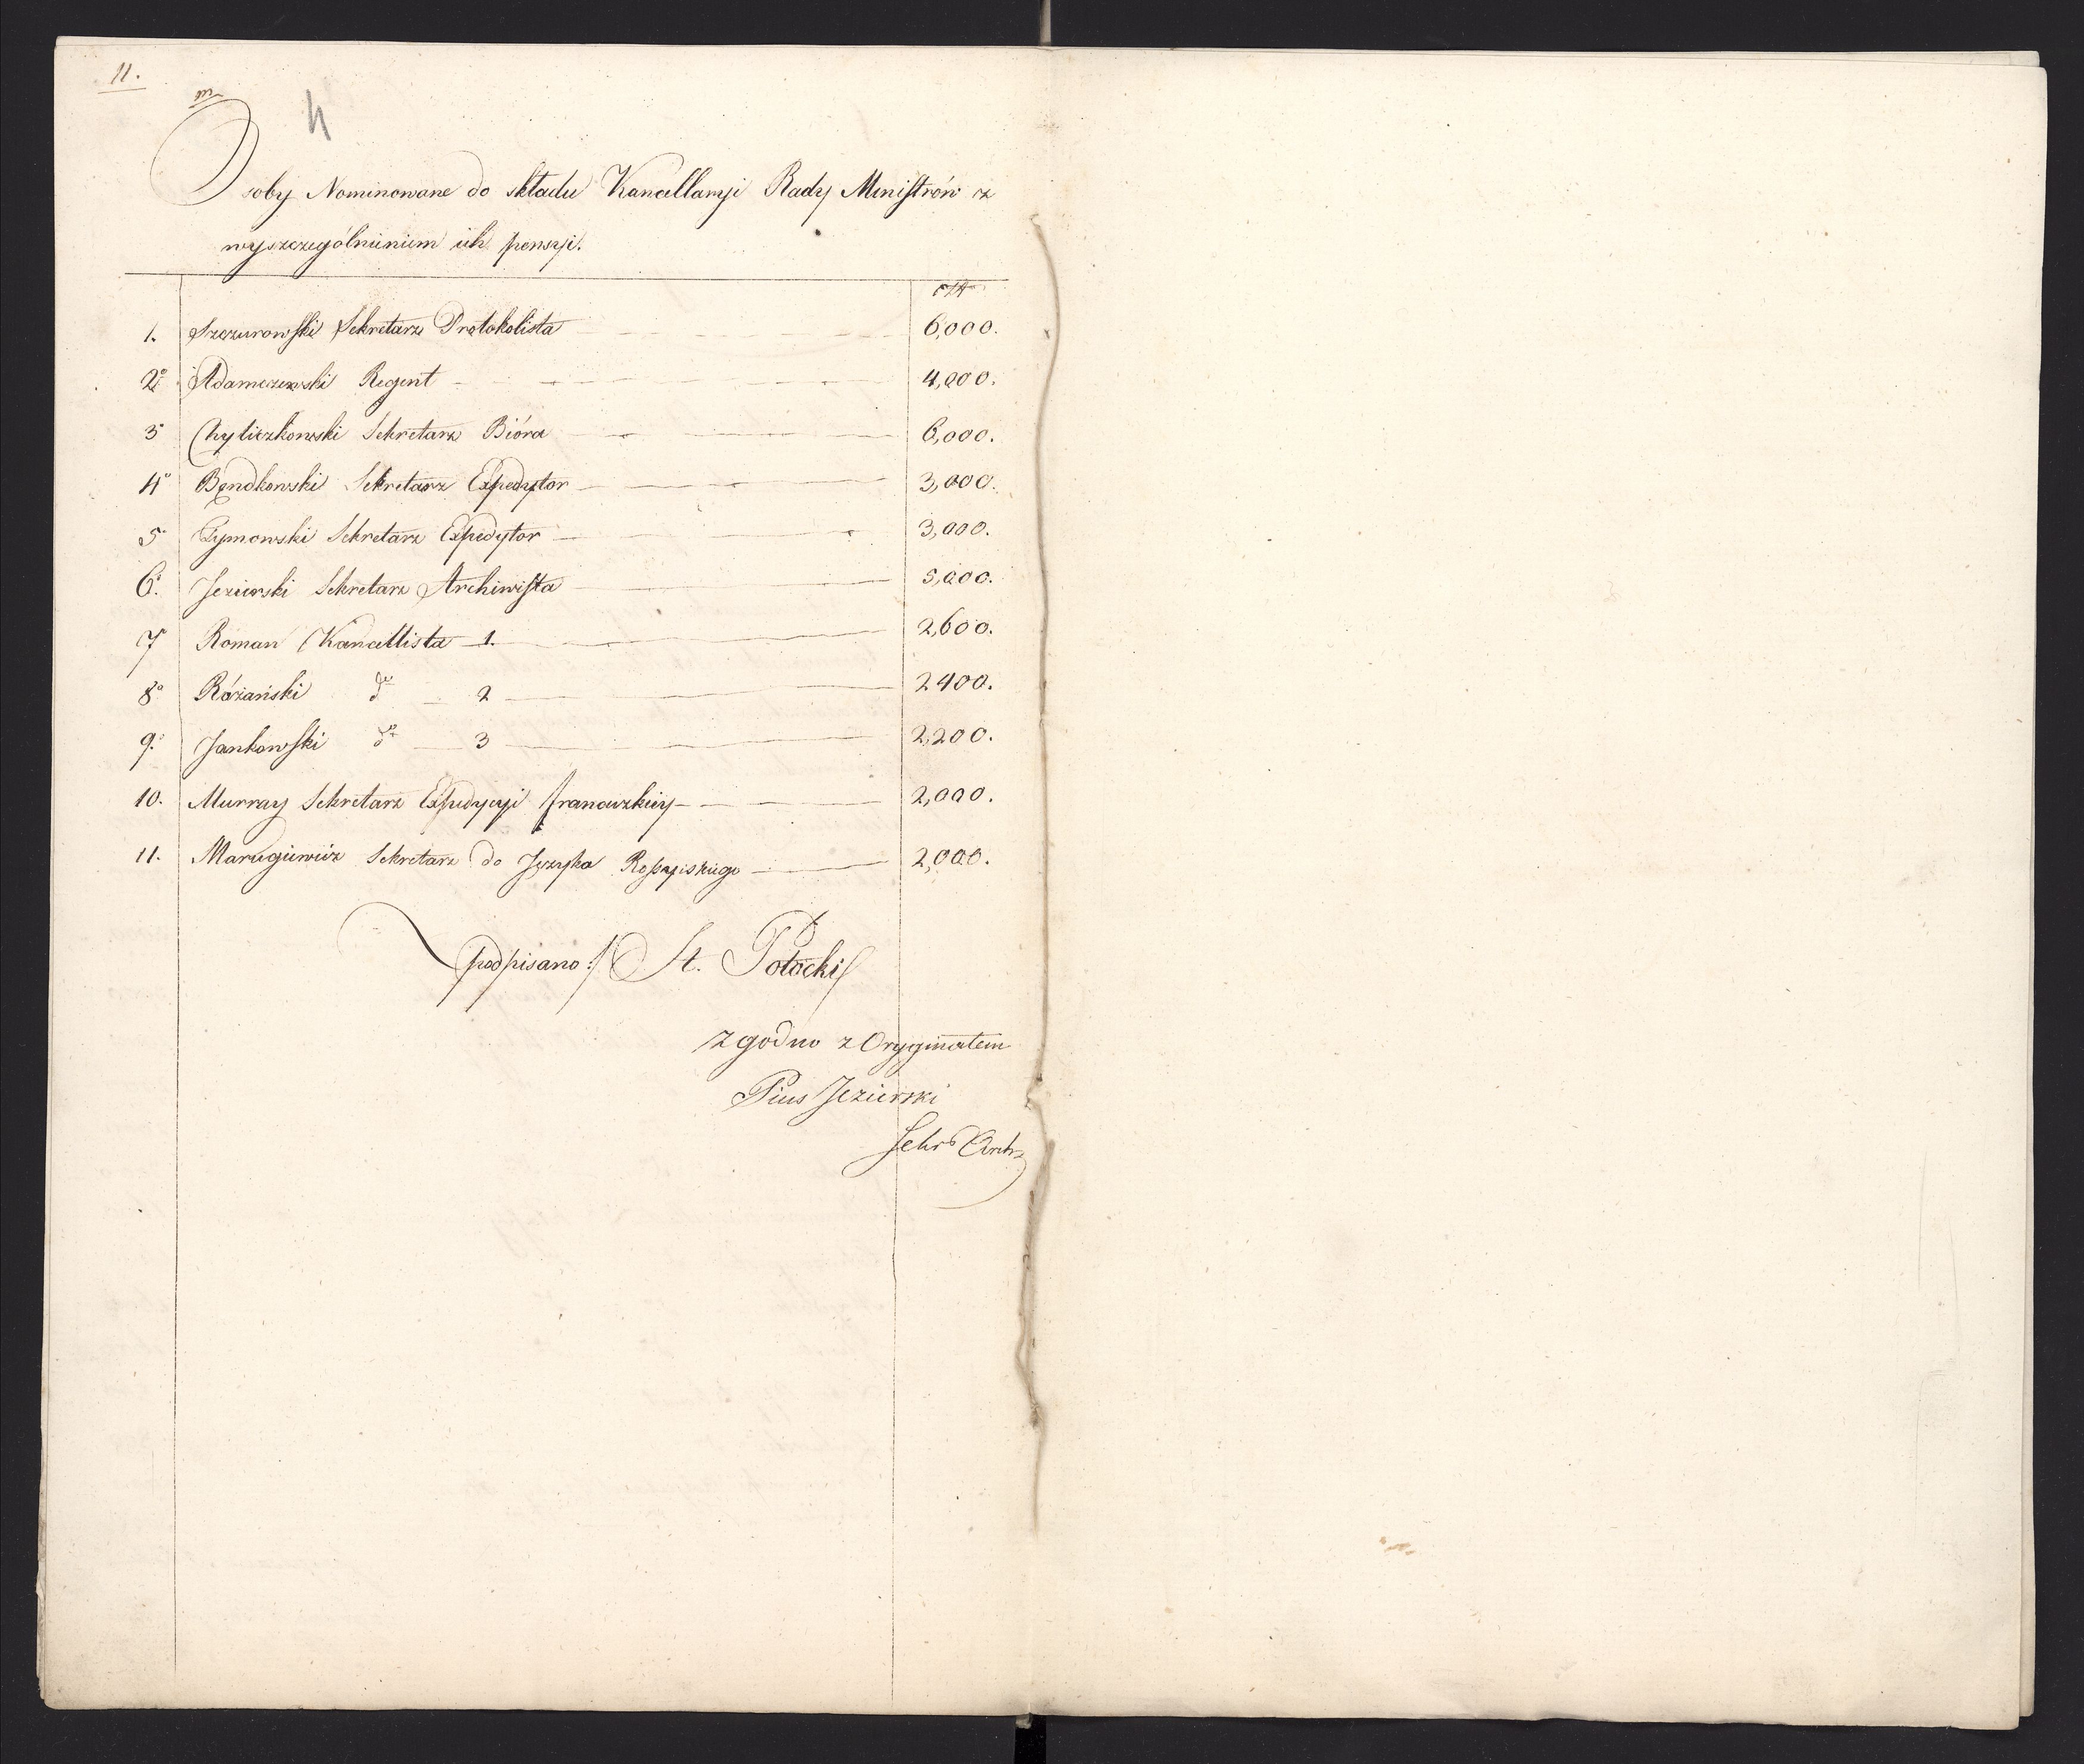 11.
4
Osoby Nominowane do składu Kancellaryi Rady Ministrów z
wyszczególnieniem ich pensyi.
1. Szczurowski Sekretarz Protokolista 6,000.
2o Adamczewski Regent 4,000.
3o Chyliczkowski Sekretarz Bióra 6,000.
4o Bendkowski Sekretarz Expedytor 3,000.
5o Tymowski Sekretarz Expedytor 3,000.
6o Jezierski Sekretarz Archiwista 5,000.
7o Roman Kancellista 1. 2,600.
8o Różański do 2 2400.
9o Jankowski do 3 2,200.
10. Murray Sekretarz Expedycyi francuzkiey 2,000.
11. Sekretarz do Języka Rossyiskiego 2,000.
podpisano:/ St. Potocki
Zgodno z Oryginałem
Pius Jezierski
Sekr Arch